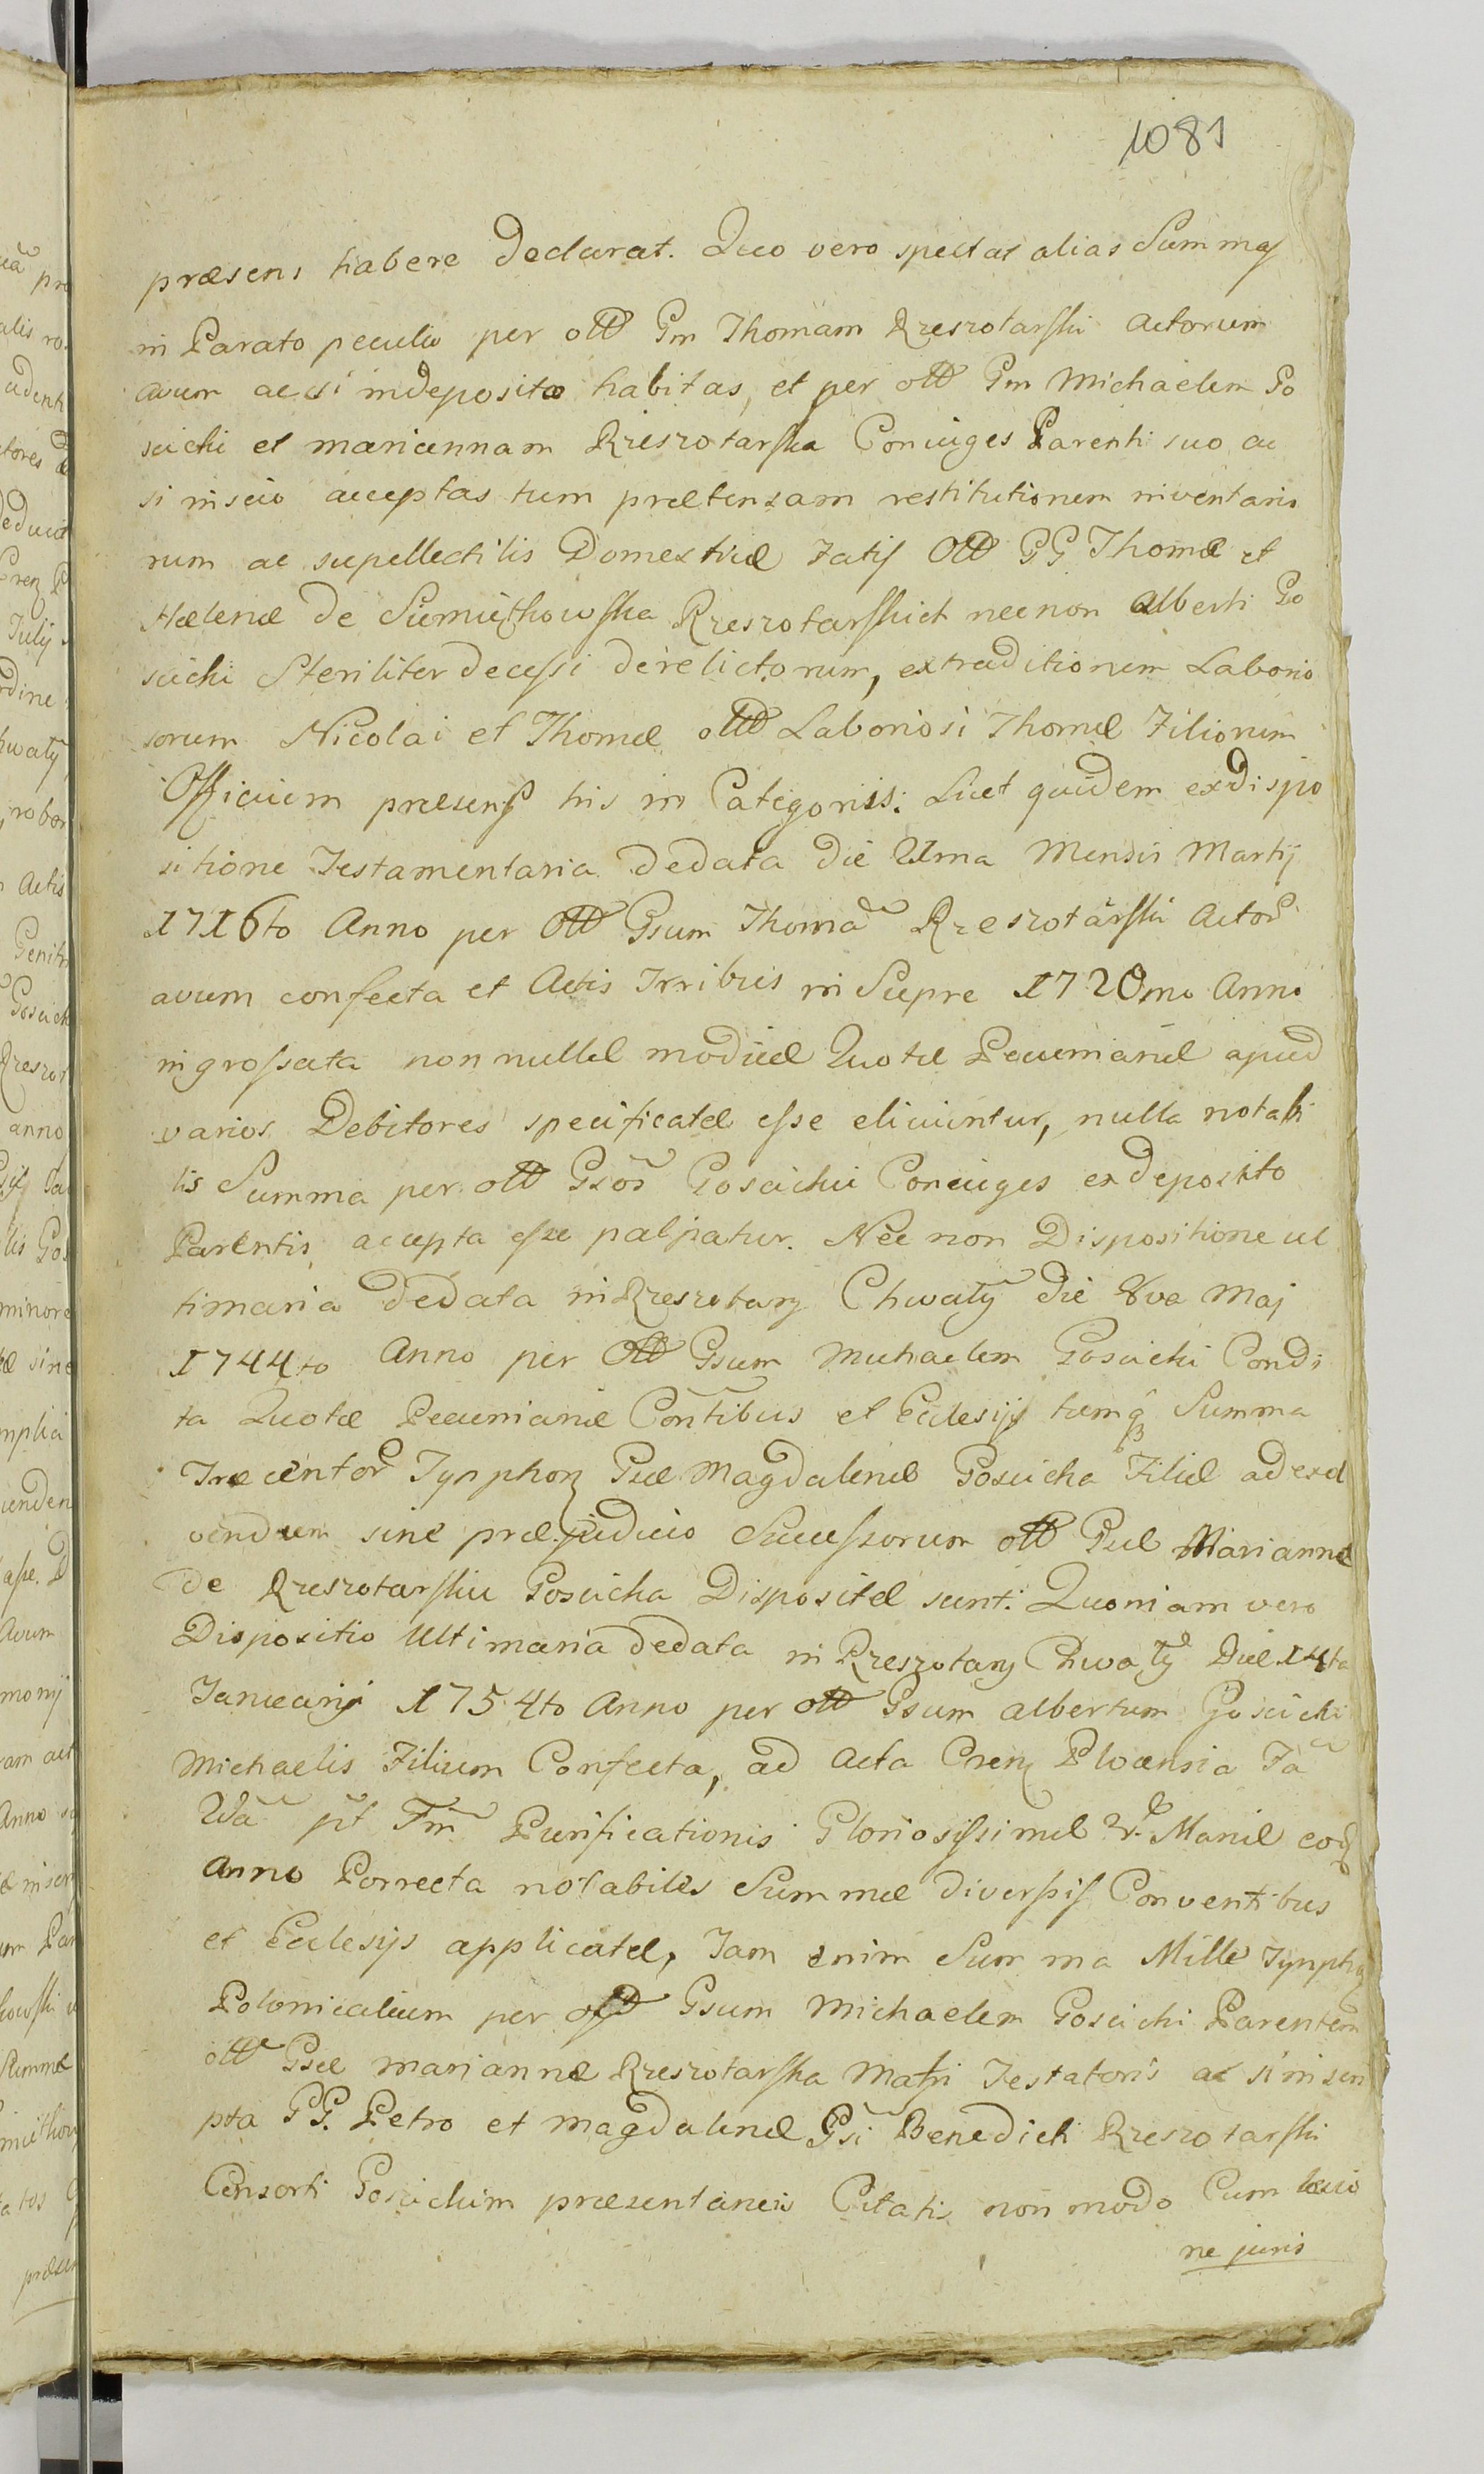 1081
præsens habere Declarat. Quo vero spectat alias Summas
in Parato peculio per olld Gm Thomam Rzeszotarski Actorum
avum ac si in deposito habitas, et per olld Gm Michaelem Go
scicki et mariannam Rzeszotarska Coniuges Parenti suo ac
si inscio acceptas tum prætensam restitutionem inventario
rum ac supellectilis Domesticæ Fatis Olld GG Thomæ et
Helenæ de Sumińskowska Rzeszotarskich necnon Alberti Go
scicki Steriliter decessi derelictorum, extraditionem Laborio
sorum Nicolai et Thomæ olld Laboriosi Thomæ Filiorum
Officium præsens his in Categoriis: Licet quidem ex dispo
sitione Testamentaria de data die Ulma Mensis Martij
1716to Anno per Olld Gsum Thomã Rzeszotarski Actor
avum confecta et Actis Trribus in Siepre 1720mo Anno
ingrossata non nullæ modicæ Quotæ Pecuniariæ apud
varios Debitores specificatæ esse eliciuntur, nulla notabi
lis Summa per olld Gsos Goscickie Coniuges ex deposito
Parentis accepta esse palpatur. Nec non Dispositione ul
timaria de data in Rzeszotary Chwały die 8va Maj
1744to Anno per Olld Gsum Michaelem Goscicki Condi
ta Quotæ Pecuniariæ Contibus et Ecclesijs tumq Summa
Trecentor Tynphon Guæ Magdalenæ Goscicka Filiæ ad exol
vendum sine præjudicio Successorum olld Guæ Mariannæ
de Rzeszotarskie Goscicka Dispositæ sunt. Quoniam vero
Dispositio Ultimaria de data in Rzeszotary Chwały Die 14ta
Januarij 1754to Anno per olld Gsum Albertum Goscicki
Michaelis Filium Confecta, ad Acta Cren Plocensia Fa
Wa pt Fm Purificationis Gloriosissimæ V. Mariæ eod
Anno Porrecta notabiles Summæ diversis Conventibus
et Ecclesijs applicatæ, Jam enim Summa Mille Tynph
Polonicalium per olld Gsum Michaelem Goscicki Parentem
olld Gsæ Mariannæ Rzeszotarska Matri Testatoris ac si inscri
pta GG. Petro et Magdalenæ Gsi Benedicti Rzeszotarski
Consorti Goscickim præsentaneis Citatis non modo Cum
ne juris